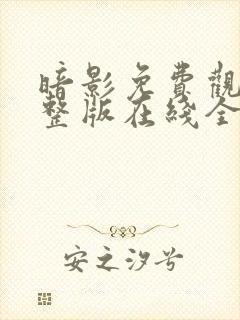 暗影免費觀
整版在綫全
安之汐兮